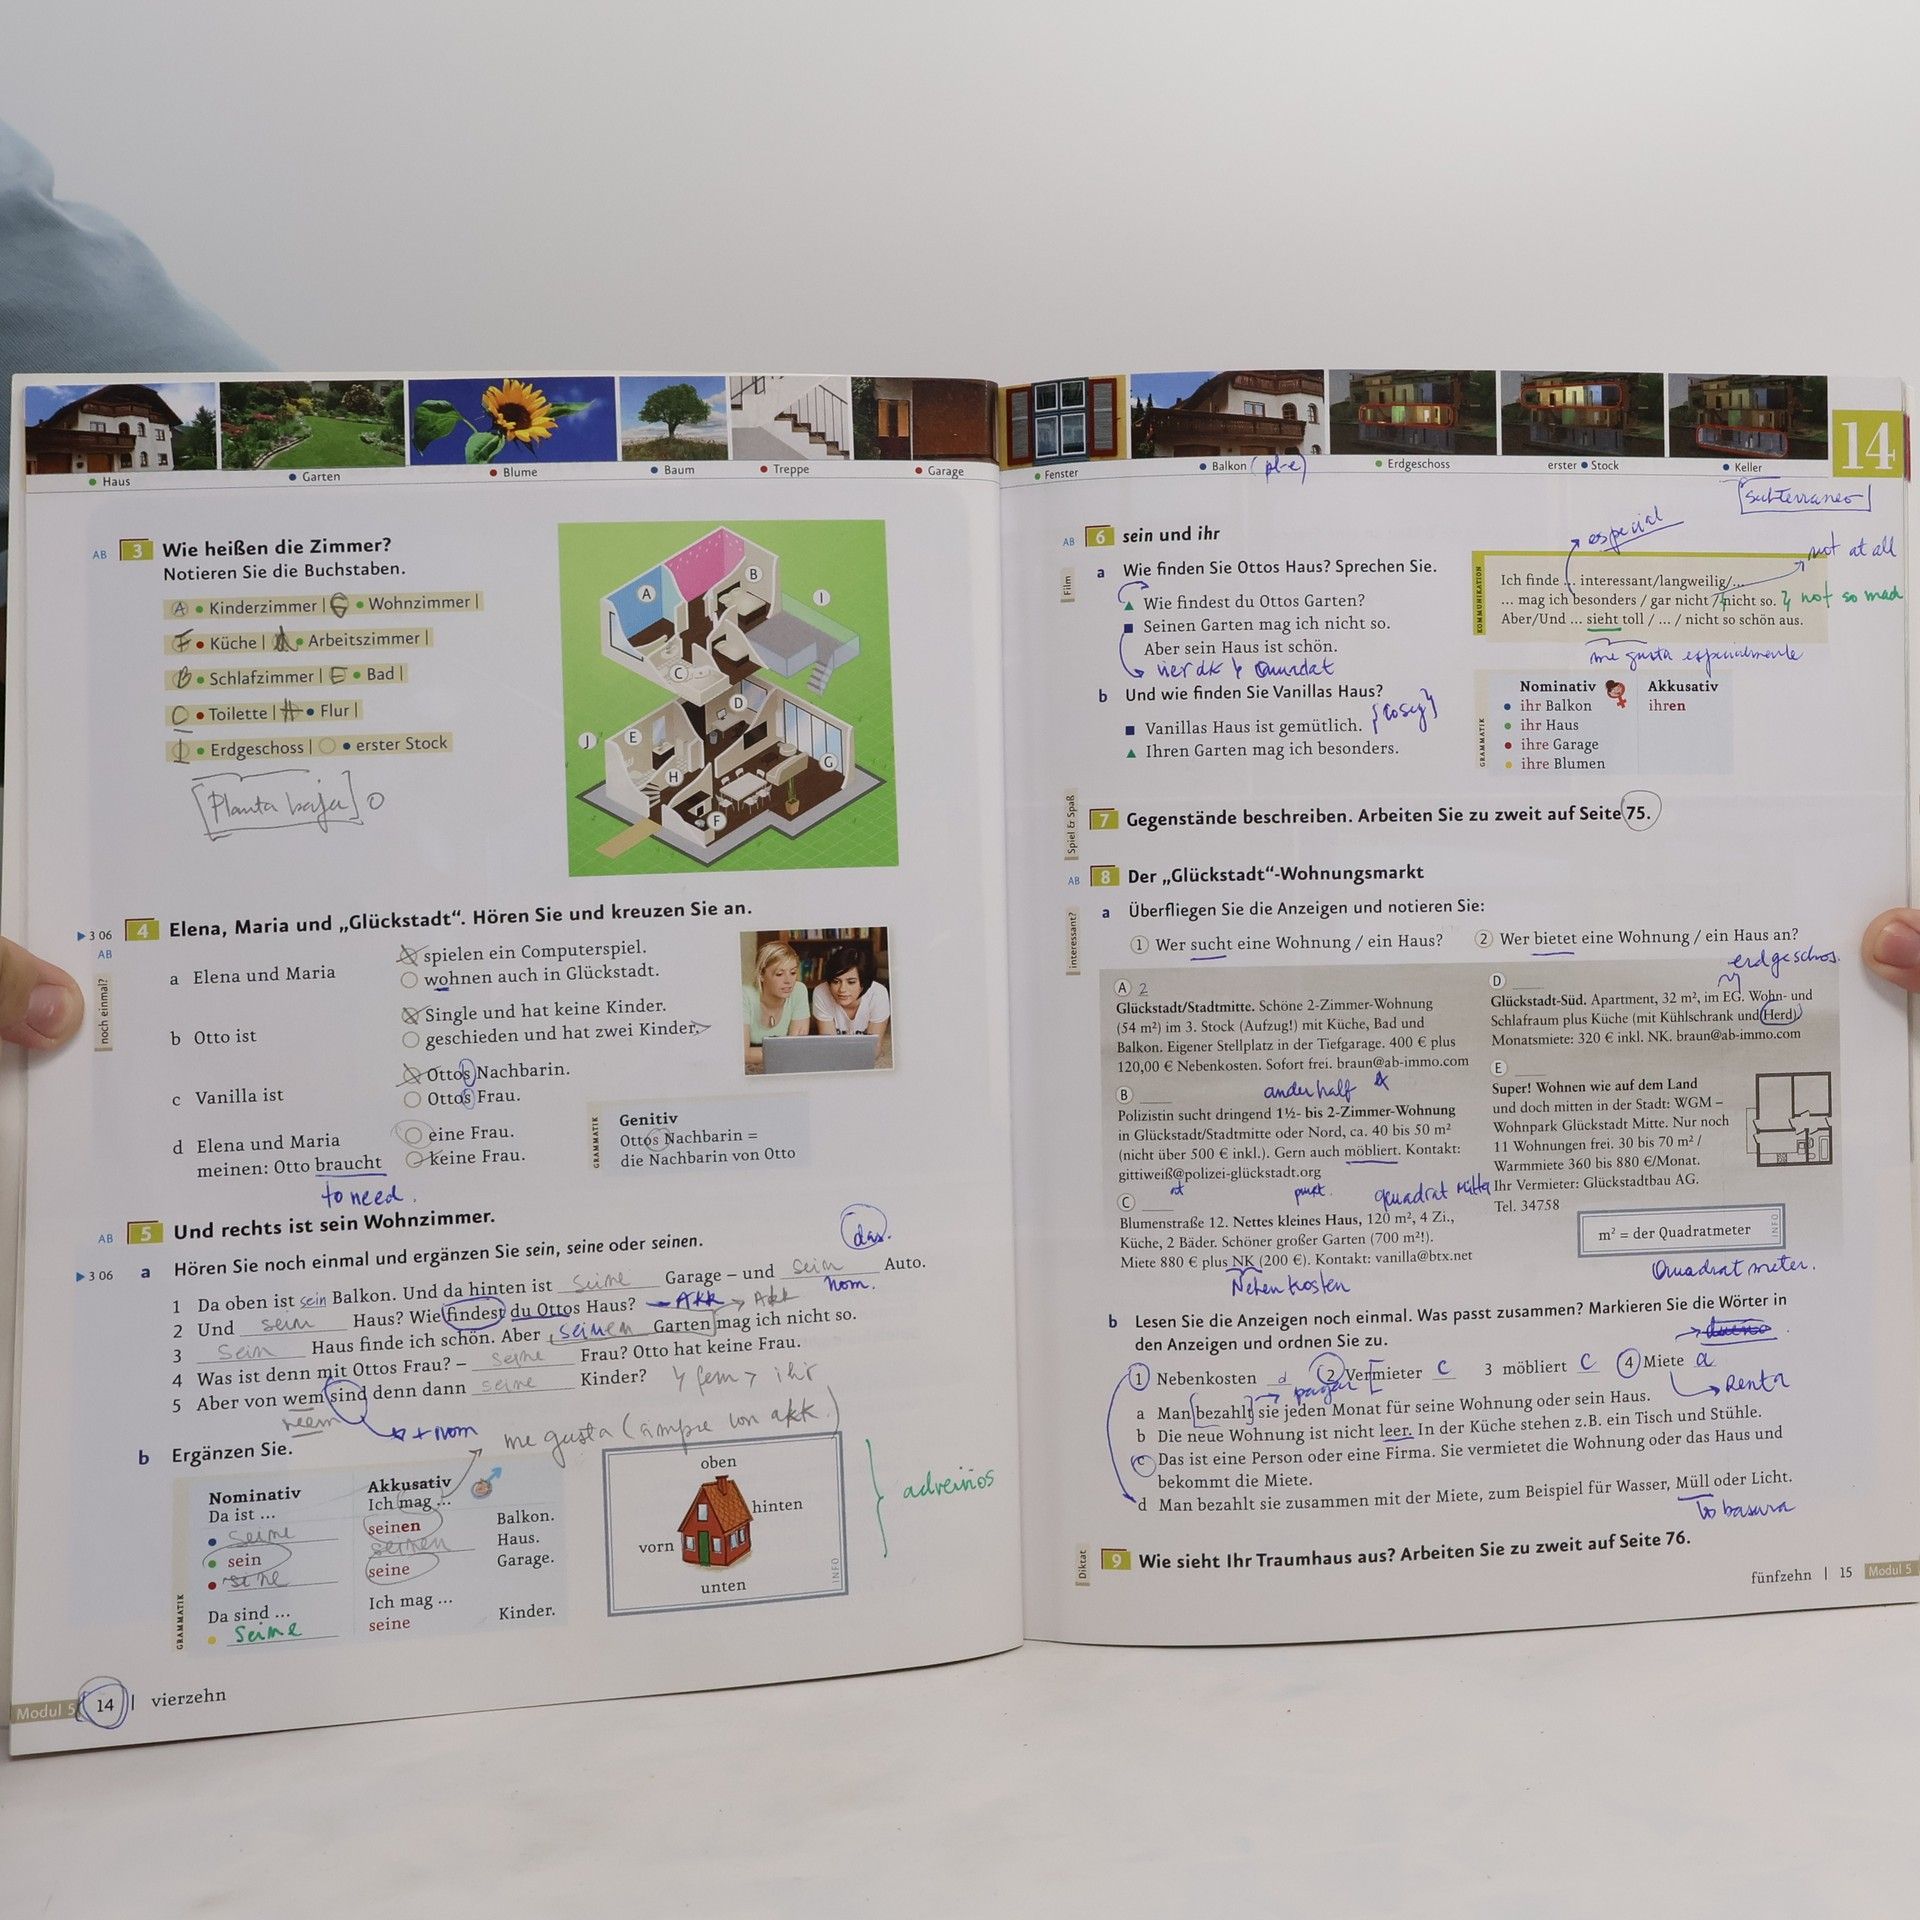 Haus
Garten
Blume
Baum
Treppe
Garage
AB 3 Wie heißen die Zimmer?
Notieren Sie die Buchstaben.
A Kinderzimmer | G Wohnzimmer |
F Küche | Arbeitszimmer |
B Schlafzimmer | E Bad |
C Toilette | H Flur |
I Erdgeschoss | erster Stock
[Planta baja] 0
A
B
I
C
D
J
E
H
G
F
▶ 3 06 4 Elena, Maria und „Glückstadt“. Hören Sie und kreuzen Sie an.
AB
noch einmal?
a Elena und Maria
spielen ein Computerspiel.
wohnen auch in Glückstadt.
b Otto ist
Single und hat keine Kinder.
geschieden und hat zwei Kinder.
c Vanilla ist
Ottos Nachbarin.
Ottos Frau.
d Elena und Maria
meinen: Otto braucht
eine Frau.
keine Frau.
to need.
GRAMMATIK
Genitiv
Ottos Nachbarin =
die Nachbarin von Otto
AB 5 Und rechts ist sein Wohnzimmer.
▶ 3 06 a Hören Sie noch einmal und ergänzen Sie sein, seine oder seinen.
das.
1 Da oben ist sein Balkon. Und da hinten ist seine Garage – und sein Auto.
nom.
2 Und sein Haus? Wie findest du Ottos Haus? → AKK → AKK
3 Sein Haus finde ich schön. Aber seinen Garten mag ich nicht so.
4 Was ist denn mit Ottos Frau? – seine Frau? Otto hat keine Frau.
5 Aber von wem sind denn dann seine Kinder? ↳ fem > ihr
+ nom
me gusta (simpre von akk.)
b Ergänzen Sie.
GRAMMATIK
Nominativ Akkusativ
Da ist ... Ich mag ...
seine seinen Balkon.
sein seinen Haus.
seine seine Garage.
Da sind ... Ich mag ...
seine seine Kinder.
oben
hinten
vorn
unten
INFO
Modul 5 14 | vierzehn
Fenster
Balkon (pl-e)
Erdgeschoss
erster Stock
Keller
14
[subterraneo]
AB 6 sein und ihr
Film
a Wie finden Sie Ottos Haus? Sprechen Sie.
▲ Wie findest du Ottos Garten?
■ Seinen Garten mag ich nicht so.
Aber sein Haus ist schön.
b Und wie finden Sie Vanillas Haus?
■ Vanillas Haus ist gemütlich. {cosy}
▲ Ihren Garten mag ich besonders.
especial
not at all
KOMMUNIKATION
Ich finde ... interessant/langweilig/...
... mag ich besonders / gar nicht / nicht so. } not so mad
Aber/Und ... sieht toll / ... / nicht so schön aus.
me gusta especialmente
GRAMMATIK
Nominativ Akkusativ
ihr Balkon ihren
ihr Haus
ihre Garage
ihre Blumen
Spiel & Spaß
7 Gegenstände beschreiben. Arbeiten Sie zu zweit auf Seite 75.
AB 8 Der „Glückstadt“-Wohnungsmarkt
interessant?
a Überfliegen Sie die Anzeigen und notieren Sie:
1 Wer sucht eine Wohnung / ein Haus? 2 Wer bietet eine Wohnung / ein Haus an?
erdgeschos.
A 2
Glückstadt/Stadtmitte. Schöne 2-Zimmer-Wohnung
(54 m²) im 3. Stock (Aufzug!) mit Küche, Bad und
Balkon. Eigener Stellplatz in der Tiefgarage. 400 € plus
120,00 € Nebenkosten. Sofort frei. braun@ab-immo.com
anderhalf
B
Polizistin sucht dringend 1½- bis 2-Zimmer-Wohnung
in Glückstadt/Stadtmitte oder Nord, ca. 40 bis 50 m²
(nicht über 500 € inkl.). Gern auch möbliert. Kontakt:
gittiweiß@polizei-glückstadt.org
punkt.
C
Blumenstraße 12. Nettes kleines Haus, 120 m², 4 Zi.,
Küche, 2 Bäder. Schöner großer Garten (700 m²!).
Miete 880 € plus NK (200 €). Kontakt: vanilla@btx.net
Nebenkosten
D
Glückstadt-Süd. Apartment, 32 m², im EG. Wohn- und
Schlafraum plus Küche (mit Kühlschrank und Herd)
Monatsmiete: 320 € inkl. NK. braun@ab-immo.com
E
Super! Wohnen wie auf dem Land
und doch mitten in der Stadt: WGM –
Wohnpark Glückstadt Mitte. Nur noch
11 Wohnungen frei. 30 bis 70 m² /
Warmmiete 360 bis 880 €/Monat.
Ihr Vermieter: Glückstadtbau AG.
Tel. 34758
m² = der Quadratmeter
INFO
Quadratmeter.
b Lesen Sie die Anzeigen noch einmal. Was passt zusammen? Markieren Sie die Wörter in
den Anzeigen und ordnen Sie zu.
1 Nebenkosten d 2 Vermieter C 3 möbliert C 4 Miete a
→ pagar
→ Renta
a Man bezahlt sie jeden Monat für seine Wohnung oder sein Haus.
b Die neue Wohnung ist nicht leer. In der Küche stehen z.B. ein Tisch und Stühle.
c Das ist eine Person oder eine Firma. Sie vermietet die Wohnung oder das Haus und
bekommt die Miete.
d Man bezahlt sie zusammen mit der Miete, zum Beispiel für Wasser, Müll oder Licht.
↳ basura
Diktat
9 Wie sieht Ihr Traumhaus aus? Arbeiten Sie zu zweit auf Seite 76.
fünfzehn | 15 Modul 5